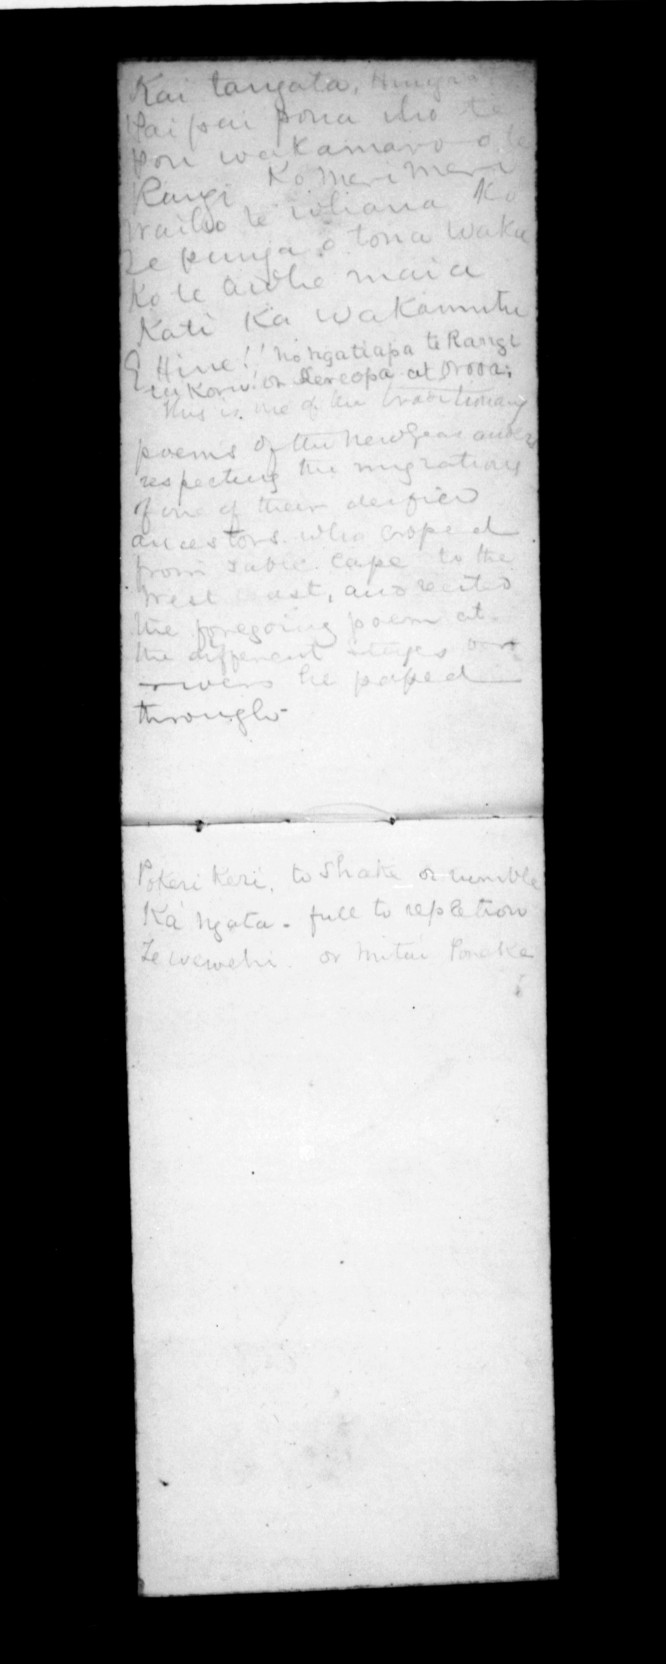 Kai tangata,
Paipai pona iho te
pou wakamaro o te
Rangi Ko merimeri
waiho te
te punga o tona waka
Ko te awhe maia
Kati Ka Wakamutu
E Hine!! no ngatiapa te Rangi
or Kereopa at Oroua;
This is one of the traditionary
poems of the New Zealanders
respecting the migrations
of one of their deified
ancestors who crossed
from Table Cape to the
West Coast, and recited
the foregoing poem at
the different stages
rivers he passed
through
Pokeri Keri, to Shake or rumble
Ka ngata. full to repletion
Te wewehi or